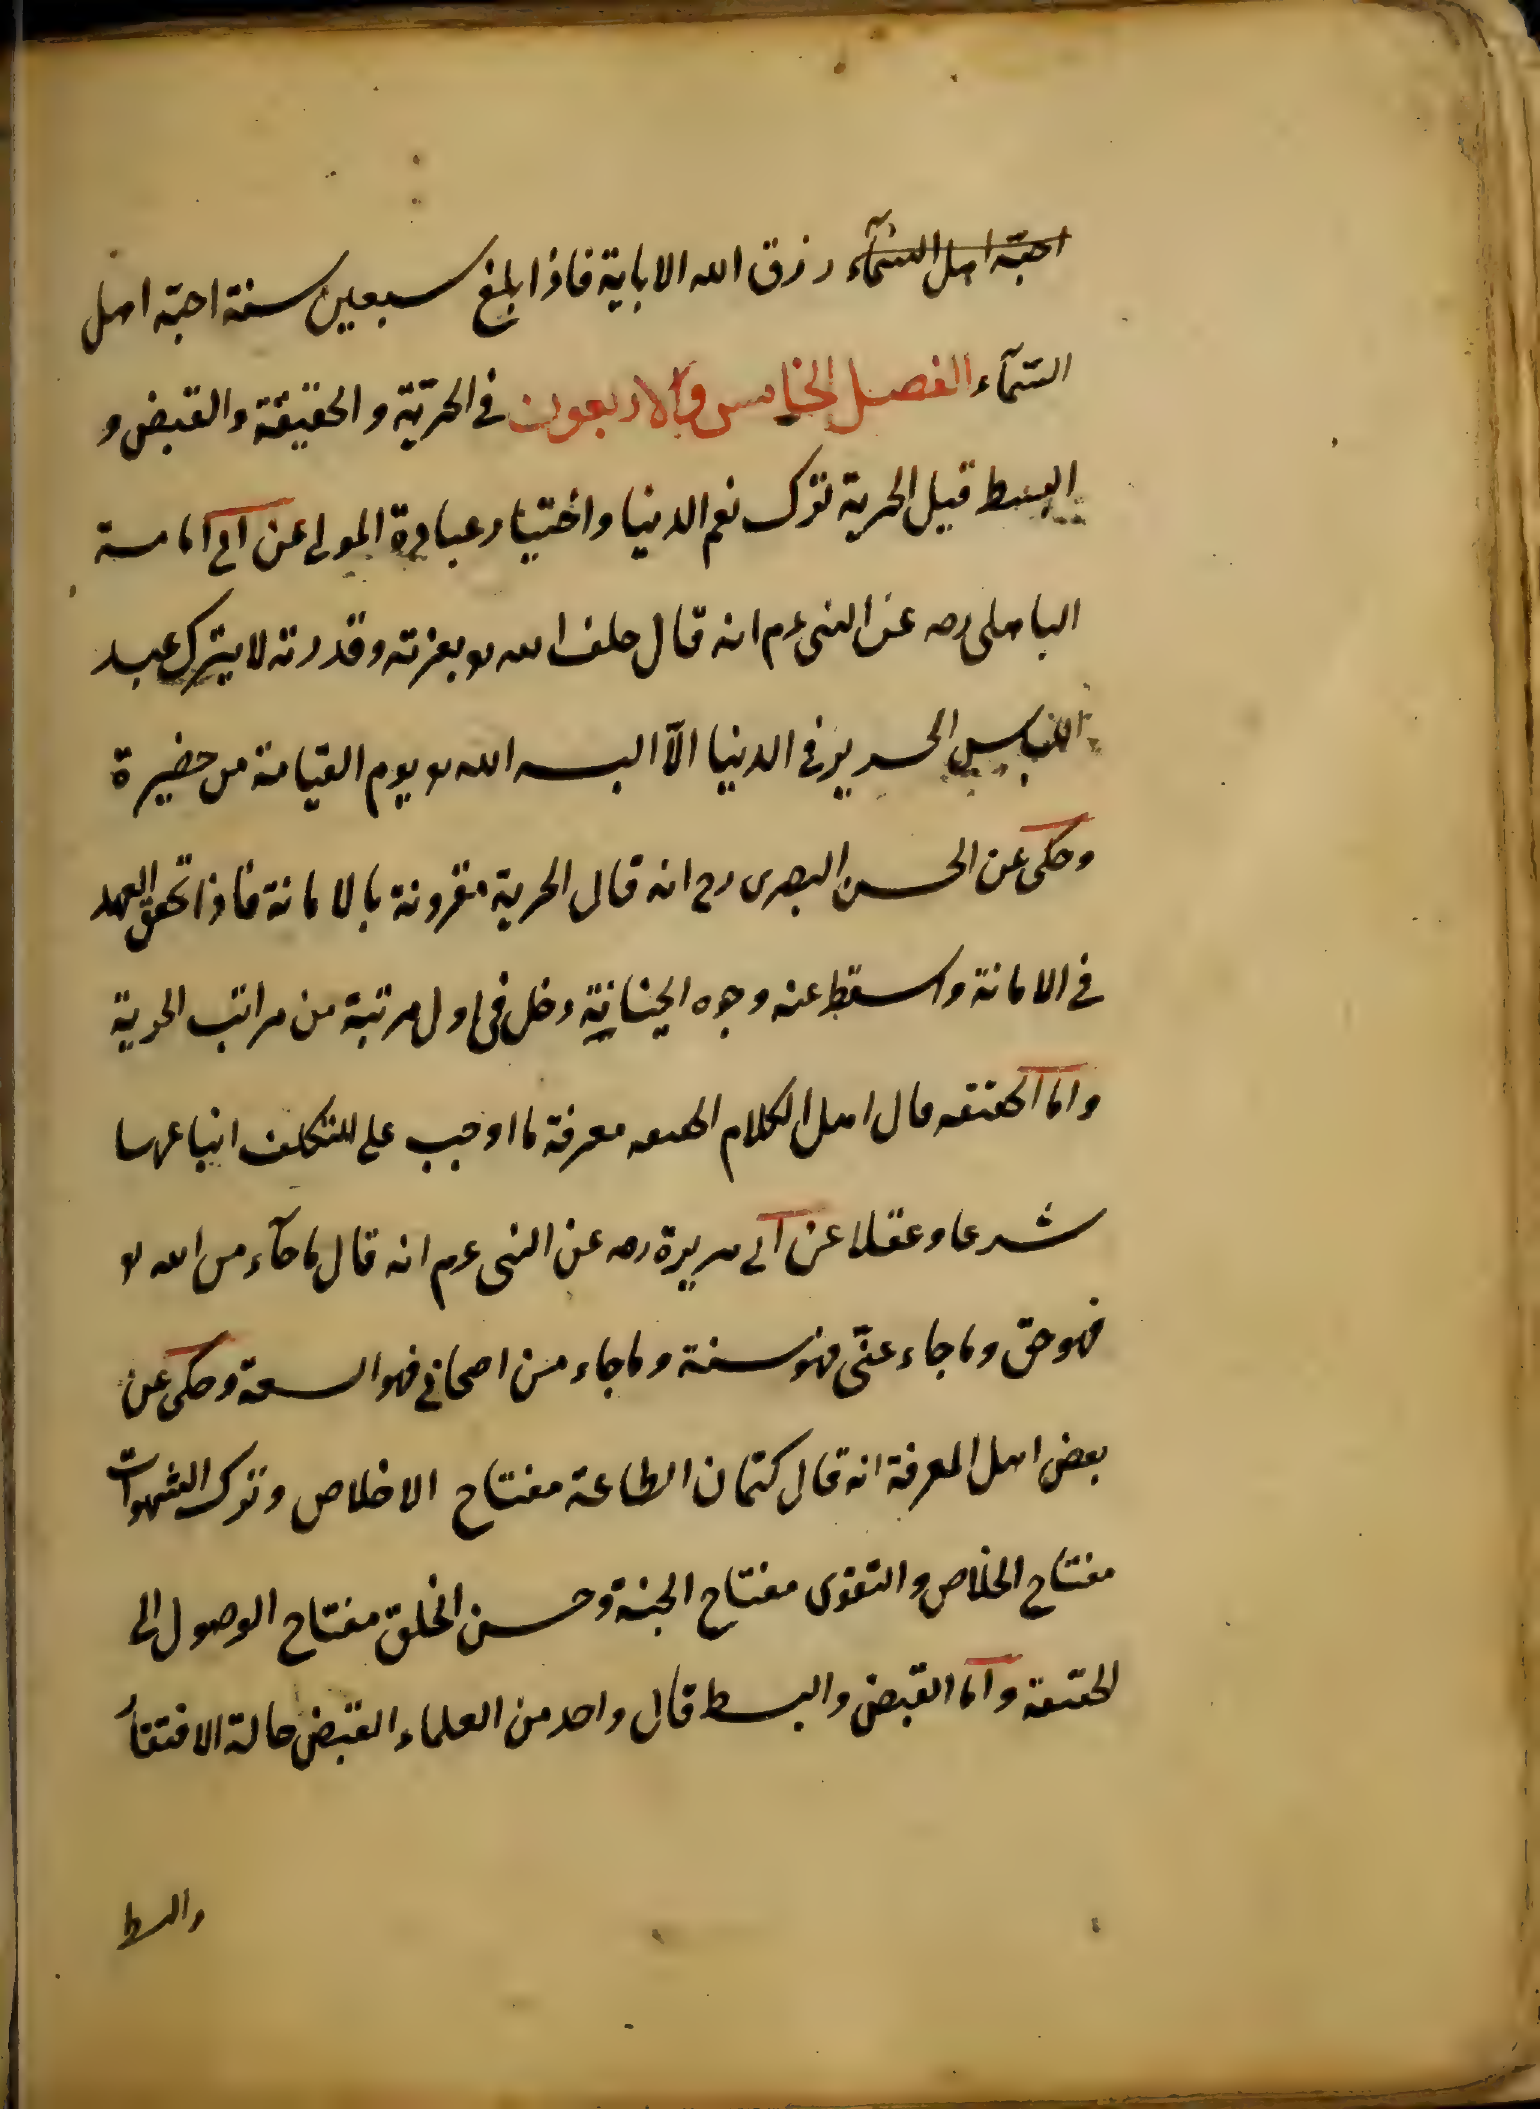 احبّه اهل السّمآء رزق الله الاباية فاذا بلغ سبعين سنة احبّه اهل
السّمآء الفصل الخامس والاربعون فى الحرّيّة والحقيقة والقبض و
البسط قيل الحرية ترك نعم الدنيا واختيار عبادة المولى عن ابى امامة
الباهلى رضه عن النبى عم انه قال حلف الله تع بعزته وقدرته لا يترك عبد
اللباس الحرير فى الدنيا الّا البسه الله تع يوم القيامة من حضيرة
وحكى عن الحسن البصرى رح انه قال الحرية مقرونة بالامانة فاذا تحقق العبد
فى الامانة واسقط عنه وجوه الخيانة دخل فى اول مرتبة من مراتب الحرية
واما الحقيقه قال اهل الكلام الحقيقه معرفة ما اوجب على المتكلف اتباعها
شرعا وعقلا عن ابى هريرة رضه عن النبى عم انه قال ما جآء من الله تع
فهو حق وما جاء عنّى فهو سنة وما جاء من اصحابى فهو السعة وحكى عن
بعض اهل المعرفة انه قال كتمان الطاعة مفتاح الاخلاص وترك الشهوات
مفتاح الخلاص والتقوى مفتاح الجنة وحسن الخلق مفتاح الوصول الى
الحقيقة واما القبض والبسط قال واحد من العلماء القبض حالة الافتقار
والبسط